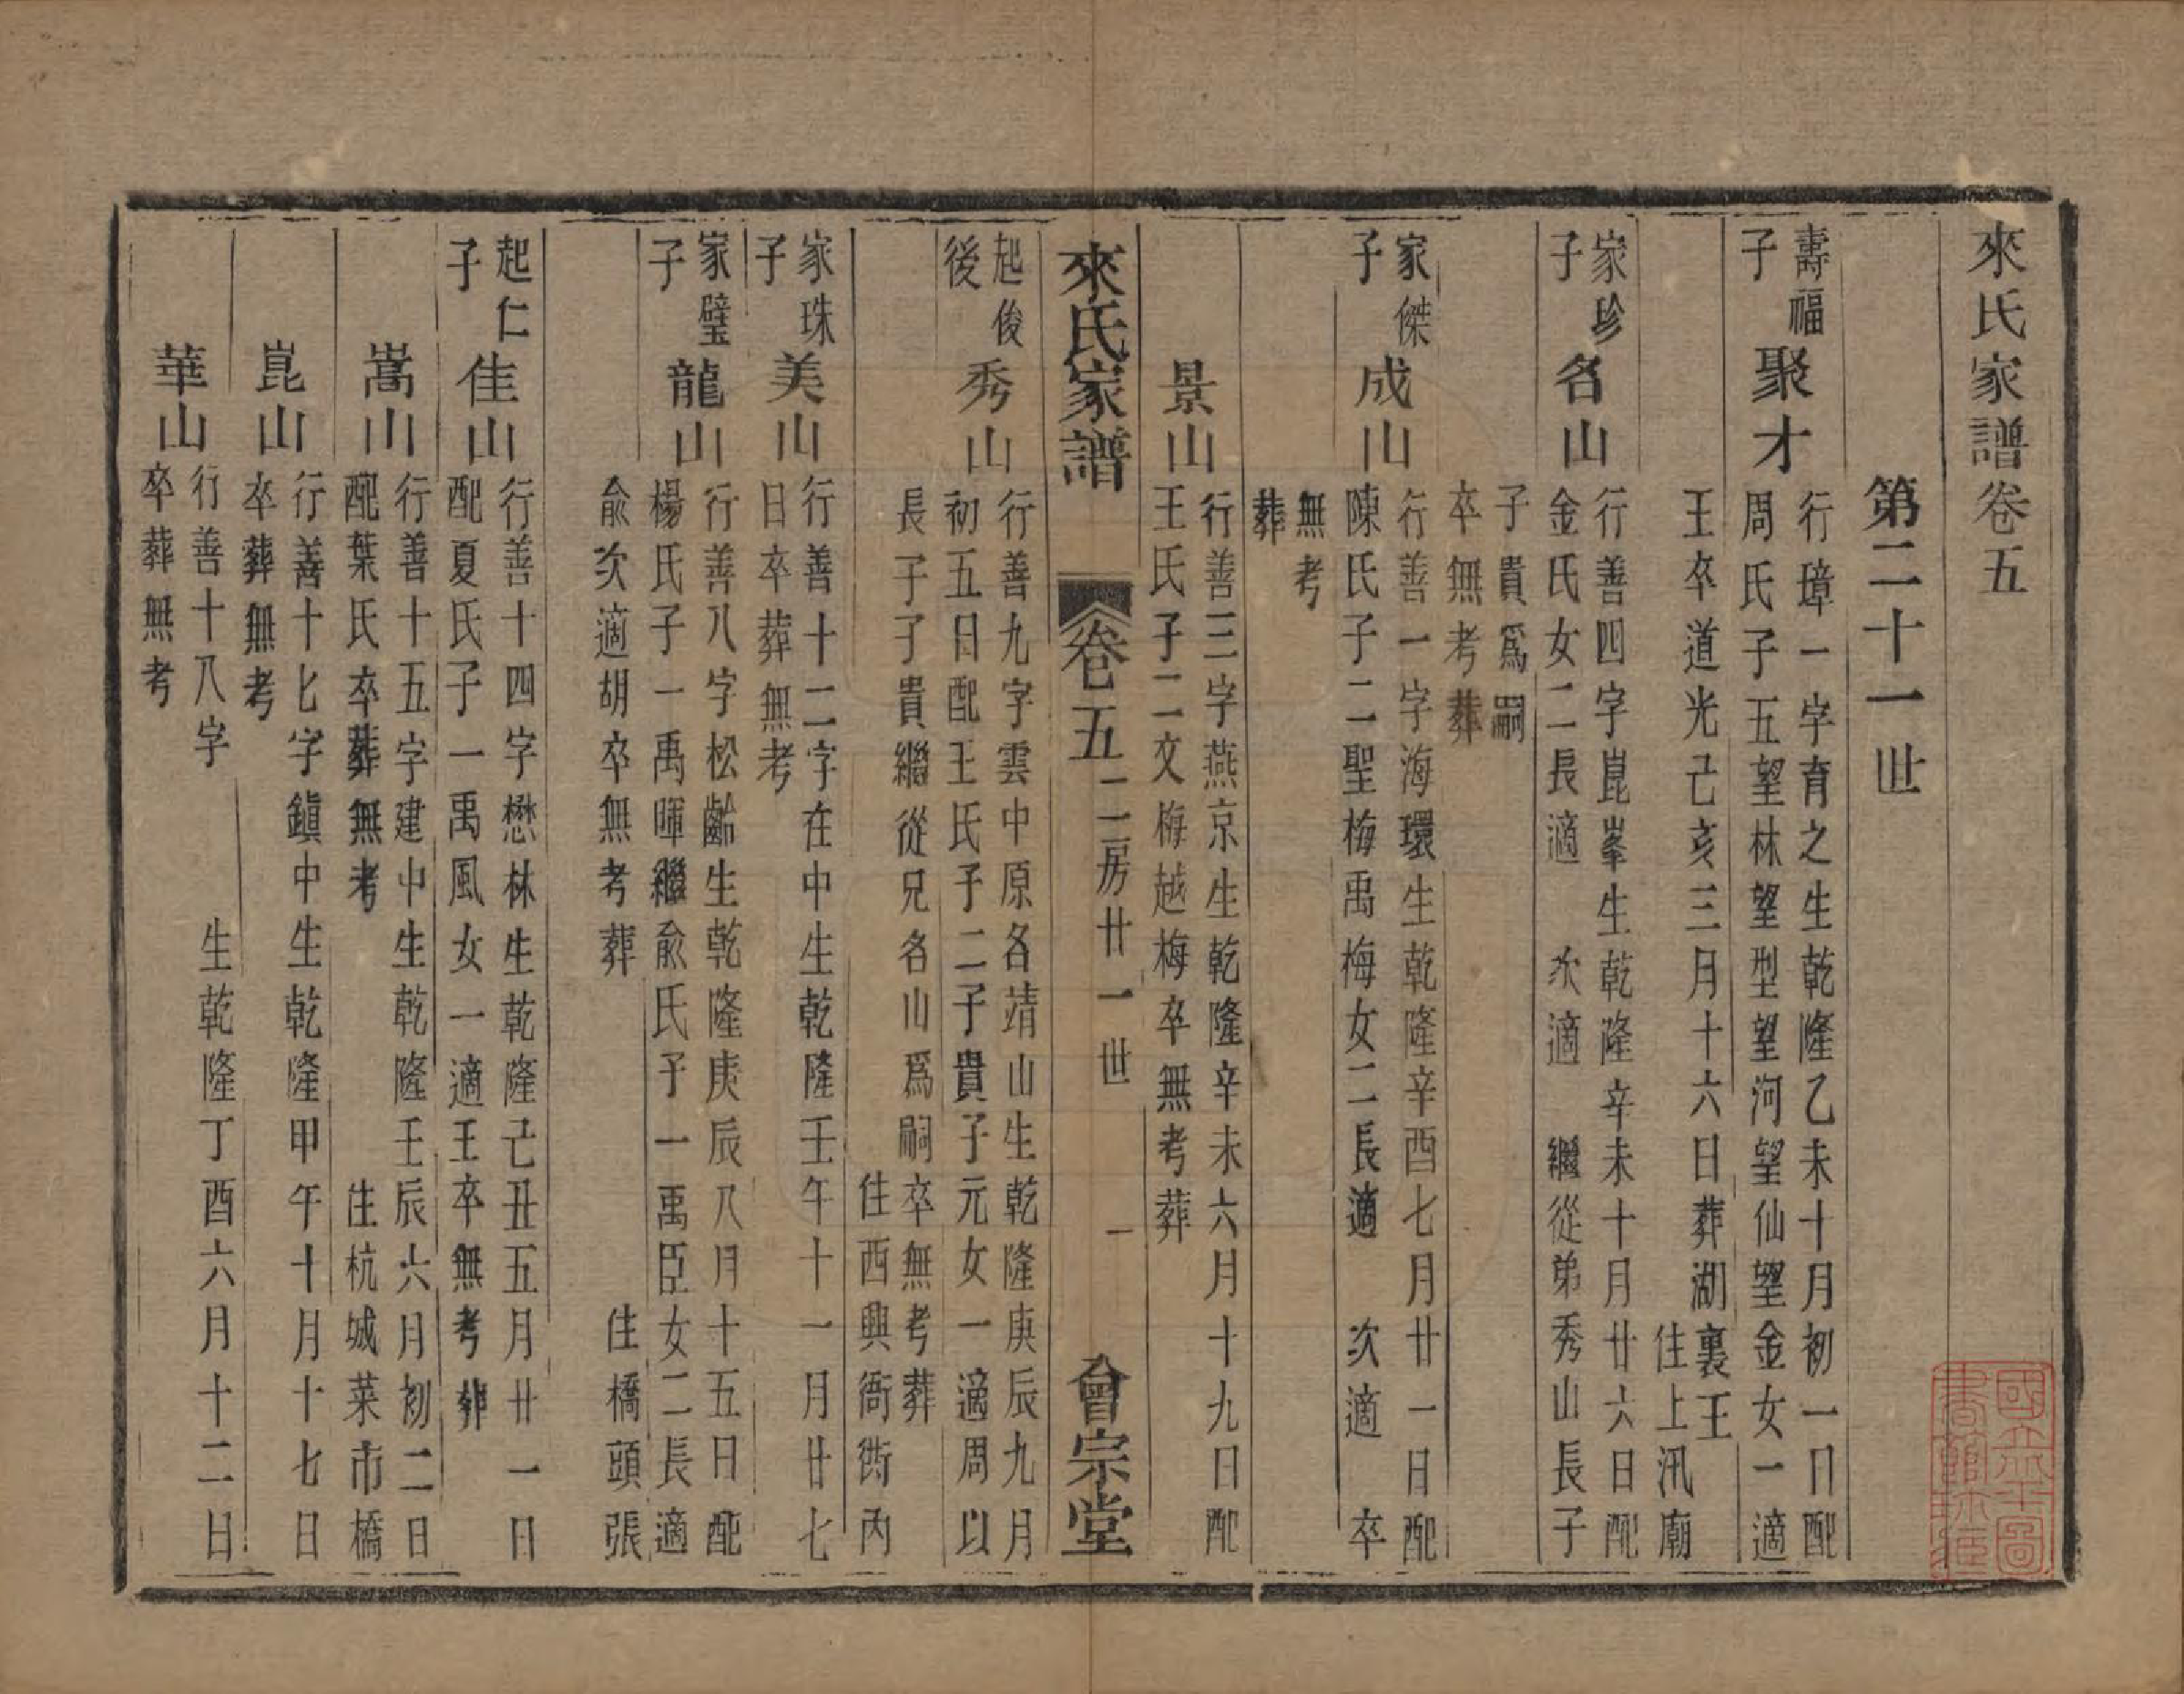 來氏家譜卷五
第二十一世
壽福
子
聚才
行璋一字育之生乾隆乙未十月初一日配
周氏子五望林望型望河望仙望金女一適
王卒道光己亥三月十六日葬湖裏王
住上汛廟
家珍
子
名山
行善四字崑峯生乾隆辛未十月廿六日配
金氏女二長適　次適　繼從弟秀山長子
子貴爲嗣
卒無考葬
家傑
子
成山
行善一字海環生乾隆辛酉七月廿一日配
陳氏子二聖梅禹梅女二長適　次適　卒
無考
葬
景山
行善三字燕京生乾隆辛未六月十九日配
王氏子二文梅越梅卒無考葬
來氏家譜
卷五
二房廿一世
一
會宗堂
起俊
後
秀山
行善九字雲中原名靖山生乾隆庚辰九月
初五日配王氏子二子貴子元女一適周以
長子子貴繼從兄名山爲嗣卒無考葬
住西興衙衖內
家珠
子
美山
行善十二字在中生乾隆壬午十一月廿七
日卒葬無考
家璧
子
龍山
行善八字松齡生乾隆庚辰八月十五日配
楊氏子一禹暉繼俞氏子一禹臣女二長適
俞次適胡卒無考葬
住橋頭張
起仁
子
佳山
行善十四字懋林生乾隆己丑五月廿一日
配夏氏子一禹風女一適王卒無考葬
嵩山
行善十五字建中生乾隆壬辰六月初二日
配葉氏卒葬無考
住杭城菜市橋
崑山
行善十七字鎮中生乾隆甲午十月十七日
卒葬無考
華山
行善十八字　生乾隆丁酉六月十二日
卒葬無考